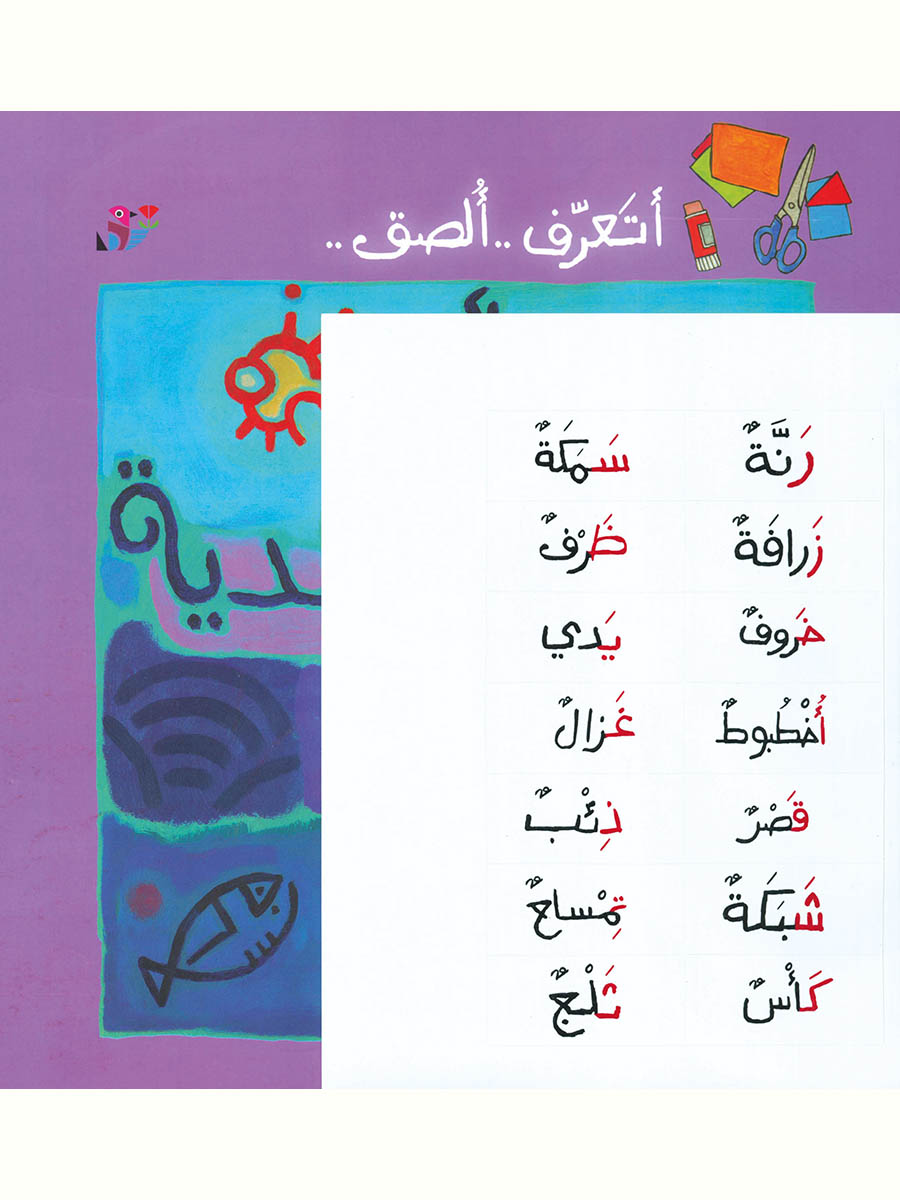 أتَعرّف .. أُلصق ..
ـدية
رَنَّةٌ سَمَكَةٌ
زَرافَةٌ ظَرْفٌ
خَروفٌ يَدي
أُخْطُبوطٌ غَزالٌ
قَصْرٌ ذِئْبٌ
شَبَكَةٌ تِمْساحٌ
كَأْسٌ ثَلْجٌ